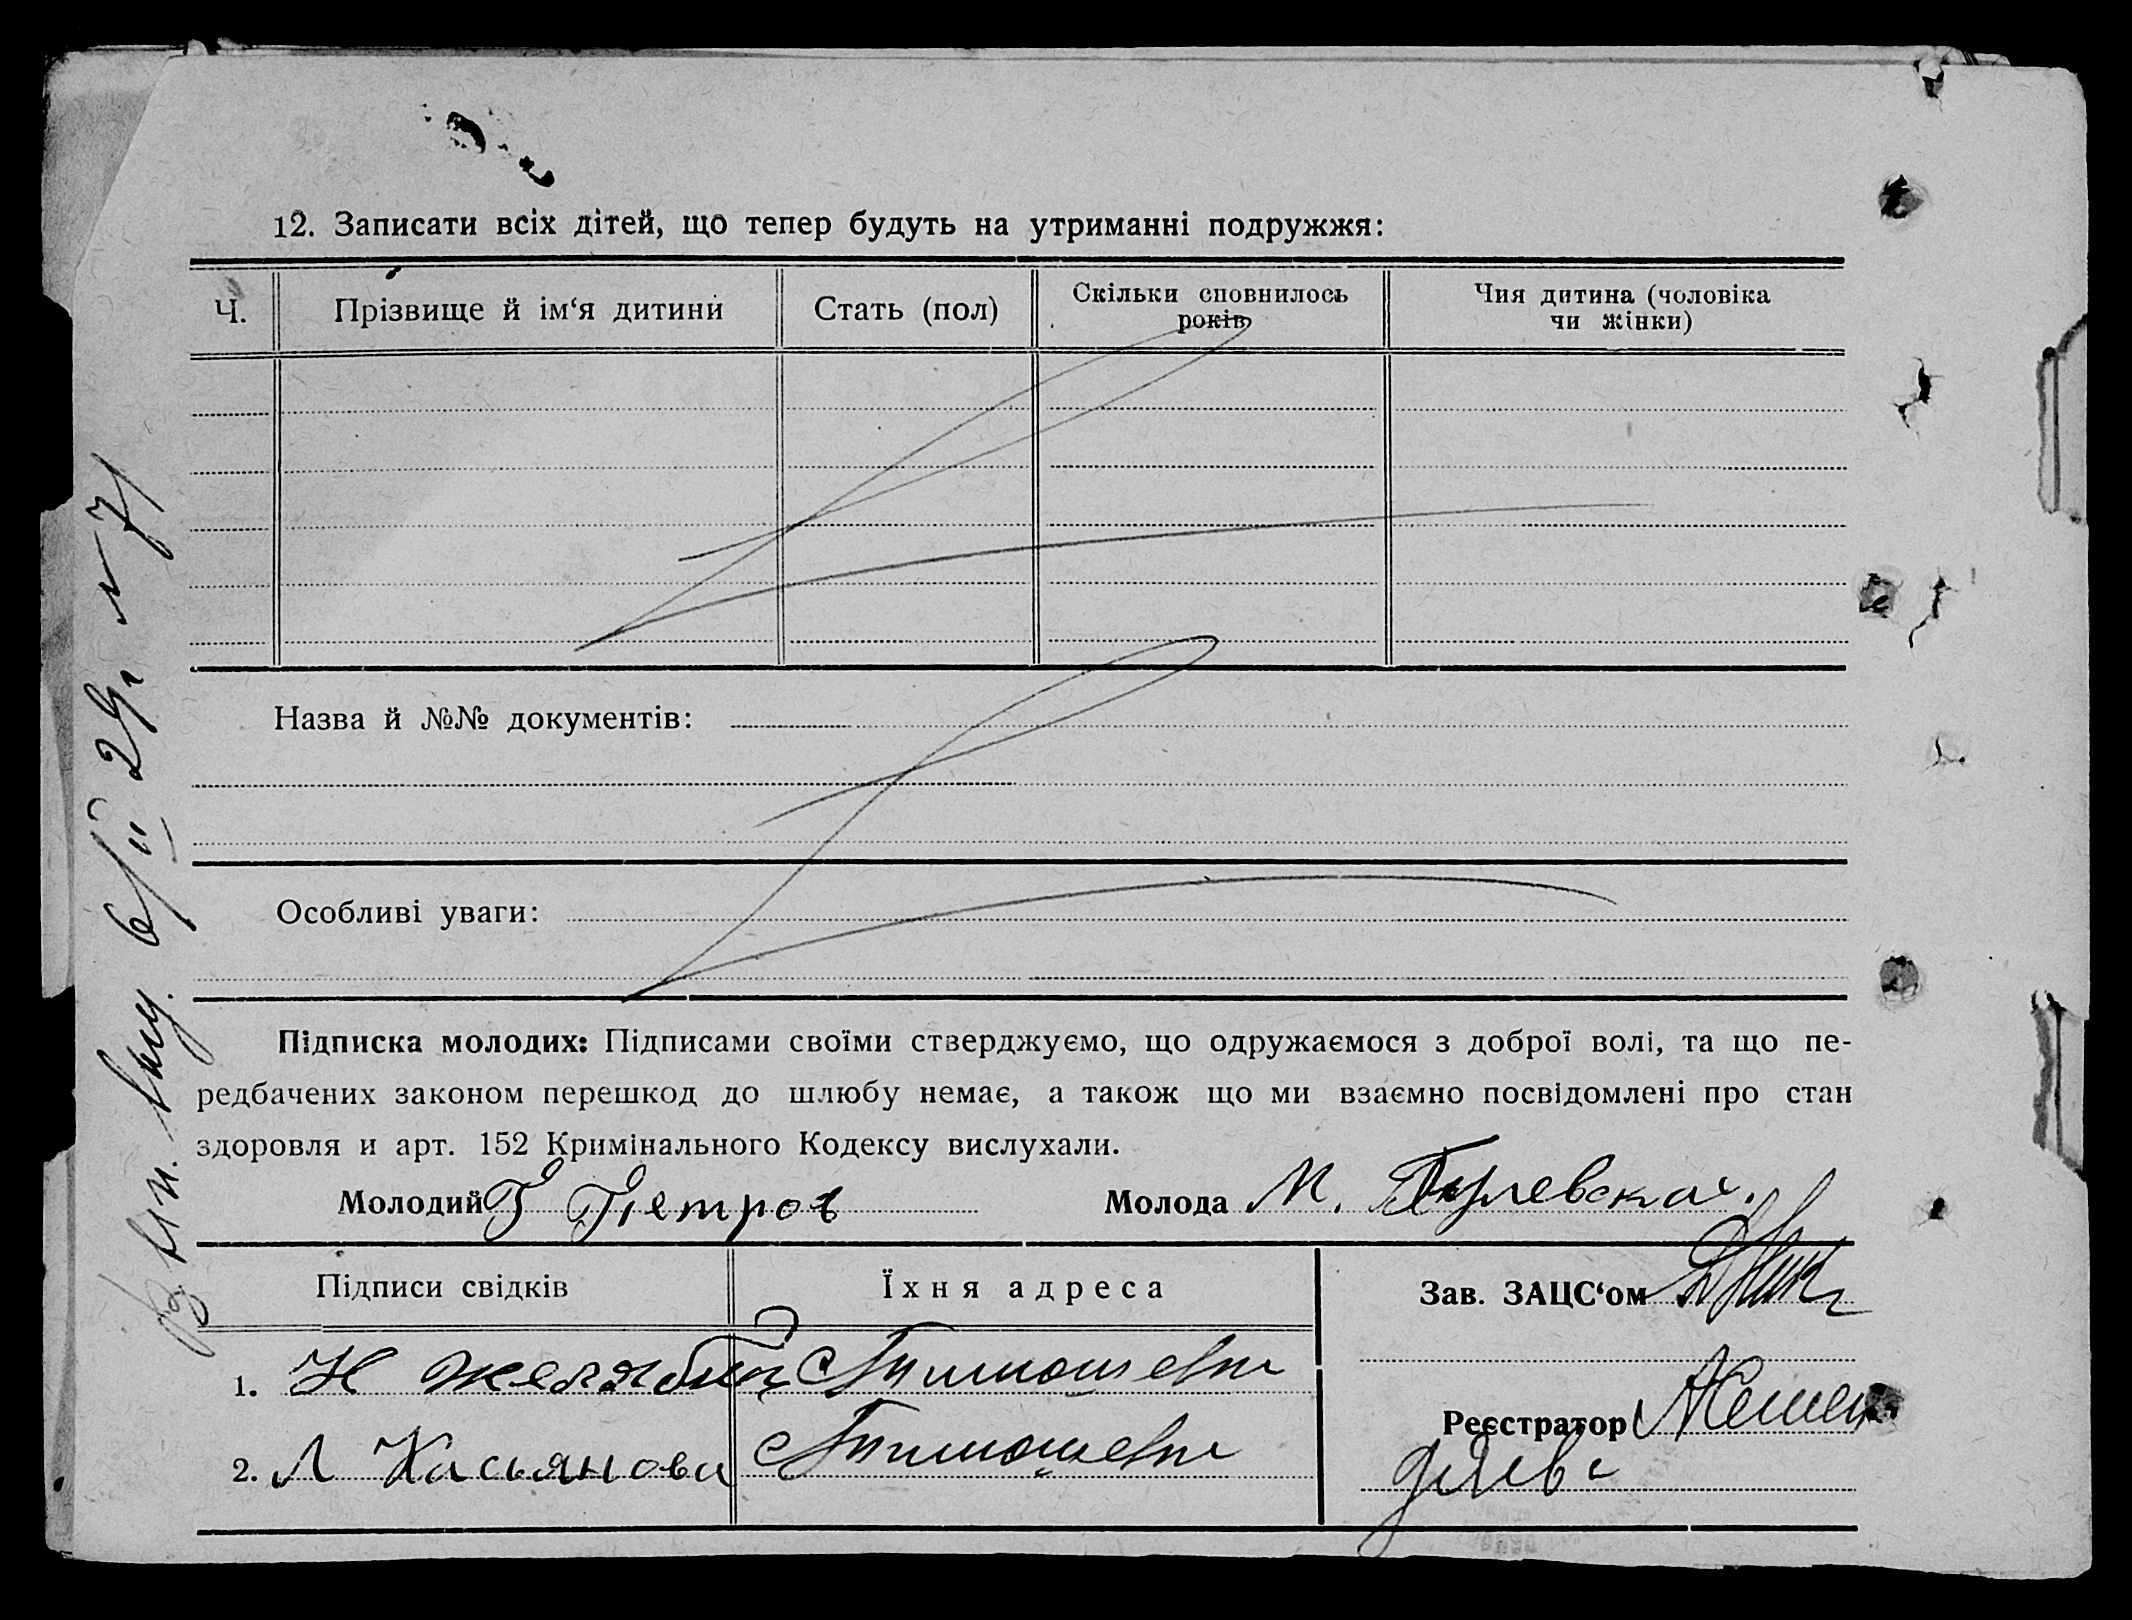 12. Записати всіх дітей, що тепер будуть на утриманні подружжя:
Ч.
Прізвище й ім‘я дитини
Стать (пол)
Скільки сповнилось
років
Чия дитина (чоловіка
чи жінки)
Назва й №№ документів:
Особливі уваги:
Підписка молодих: Підписами своїми стверджуємо, що одружаємося з доброї волі, та що пе-
редбачених законом перешкод до шлюбу немає, а також що ми взаємно посвідомлені про стан
здоровля и арт. 152 Кримінального Кодексу вислухали.
Молодий Г Петров
Молода М.
Підписи свідків
Їхня адреса
Зав. ЗАЦС‘ом
1. Н
2. Л Касьянова
Реєстратор
6/II 29г № 71